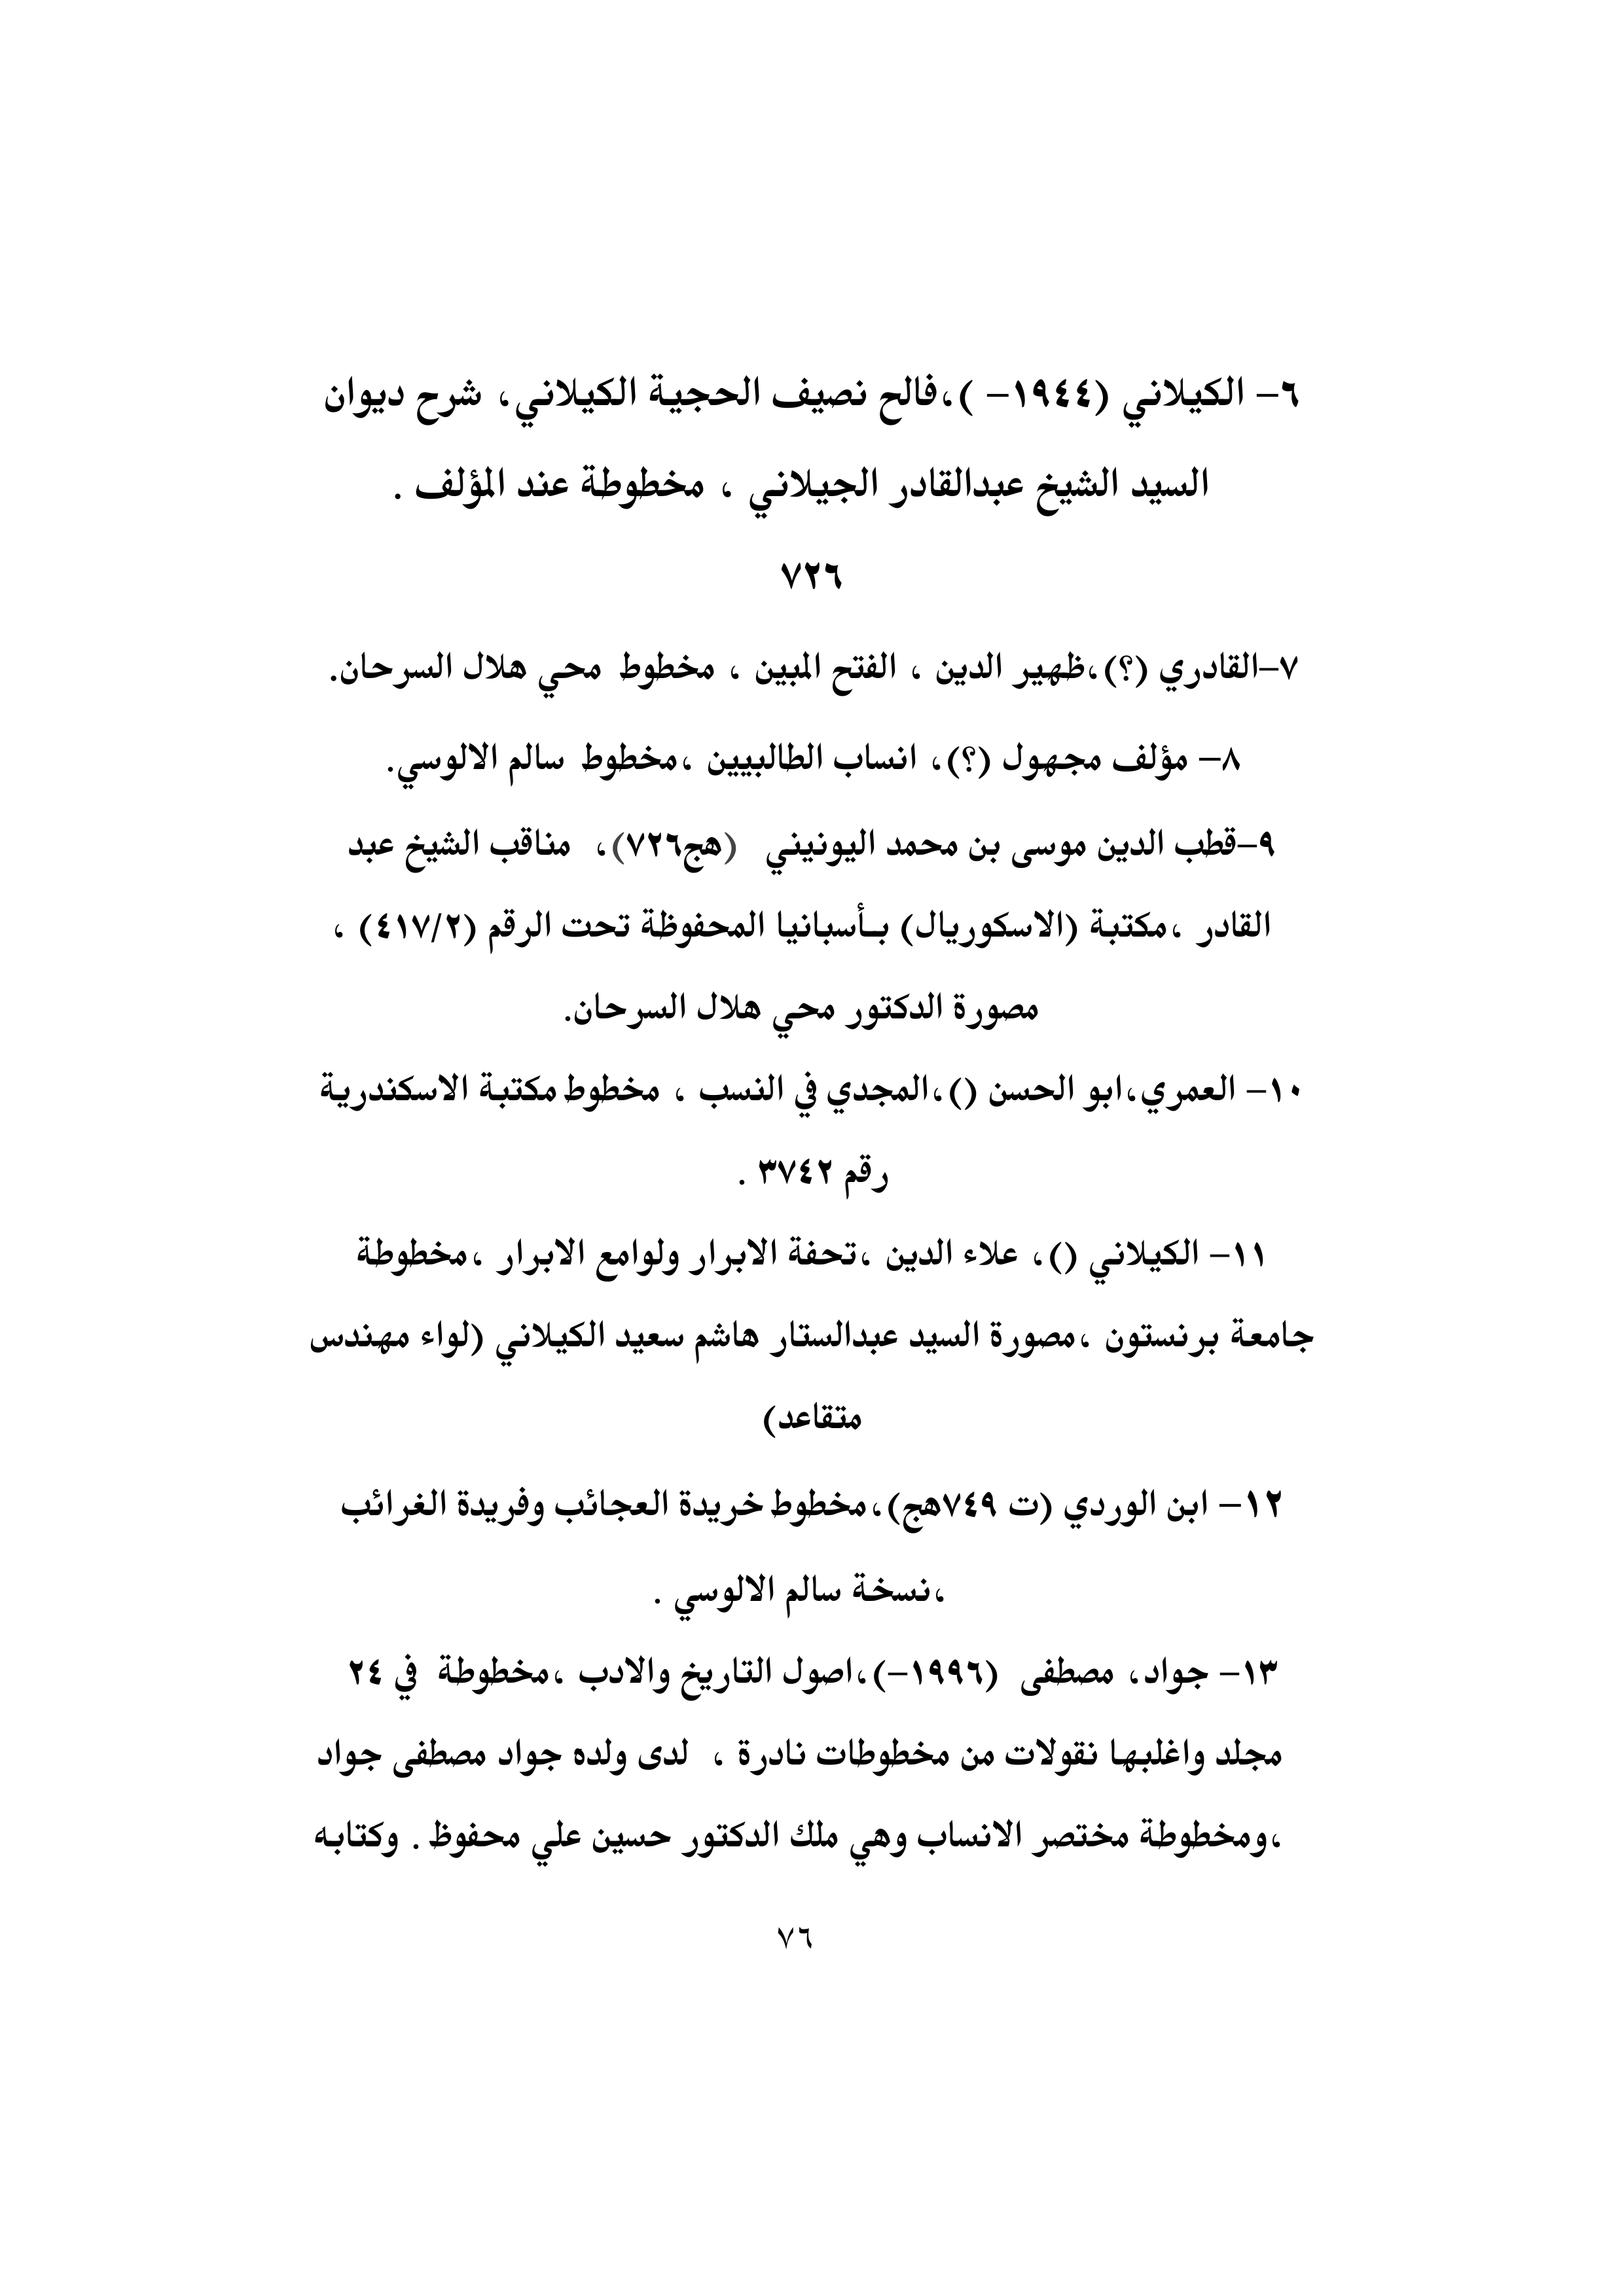 ٦- الكيلاني (١٩٤٤- )،فالح نصيف الحجية الكيلاني، شرح ديوان
السيد الشيخ عبدالقادر الجيلاني ، مخطوطة عند المؤلف .
٧٢٦
٧-القادري (؟)،ظهير الدين ، الفتح المبين ، مخطوط محي هلال السرحان.
٨- مؤلف مجهول (؟)، انساب الطالبيين ،مخطوط سالم الالوسي.
٩-قطب الدين موسى بن محمد اليونيني (هج٧٢٦)، مناقب الشيخ عبد
القادر ،مكتبة (الاسكوريال) بـأسبانيا المحفوظة تحت الرقم (٤١٧/٢) ،
مصورة الدكتور محي هلال السرحان.
١٠- العمري،ابو الحسن ()،المجدي في النسب ، مخطوط مكتبة الاسكندرية
رقم ٣٧٤٢ .
١١- الكيلاني ()، علاء الدين ،تحفة الابرار ولوامع الابرار ،مخطوطة
جامعة برنستون ،مصورة السيد عبدالستار هاشم سعيد الكيلاني (لواء مهندس
متقاعد)
١٢- ابن الوردي (ت ٧٤٩هج)،مخطوط خريدة العجائب وفريدة الغرائب
،نسخة سالم الالوسي .
١٣- جواد، مصطفى (١٩٩٦-)،اصول التاريخ والادب ،مخطوطة في ٢٤
مجلد واغلبها نقولات من مخطوطات نادرة ، لدى ولده جواد مصطفى جواد
،ومخطوطة مختصر الانساب وهي ملك الدكتور حسين علي محفوظ . وكتابه
٧٦